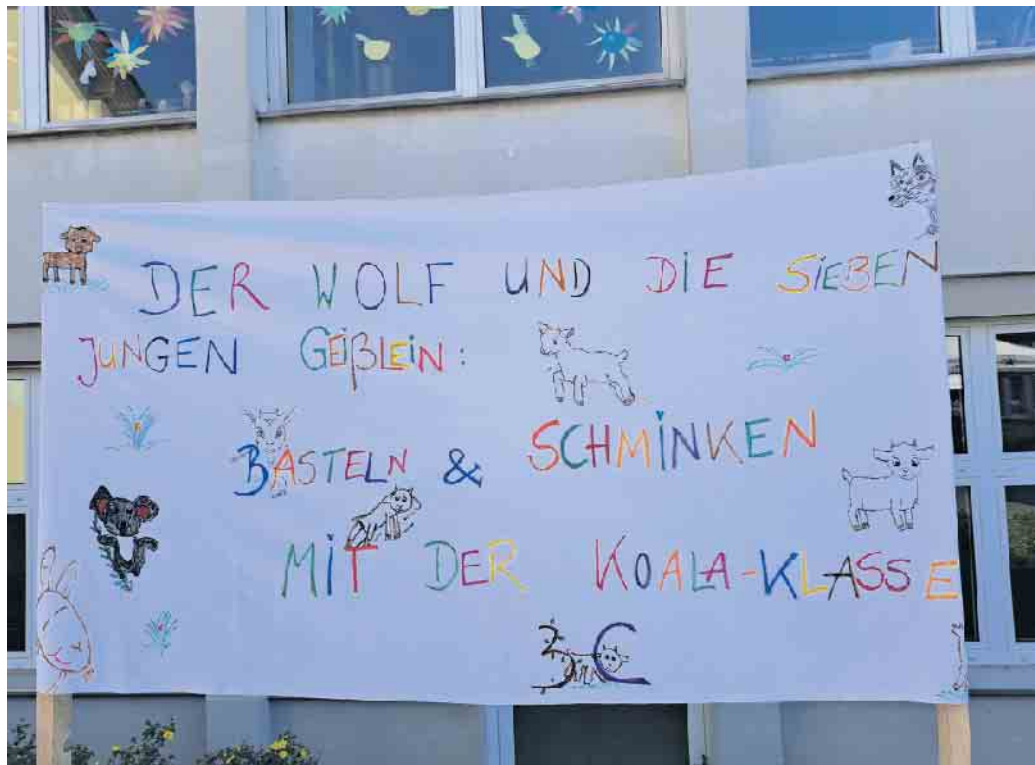 DER WOLF UND DIE SIEBEN
JUNGEN GEIßLEIN:
BASTELN & SCHMINKEN
MIT DER KOALA-KLASSE
3C